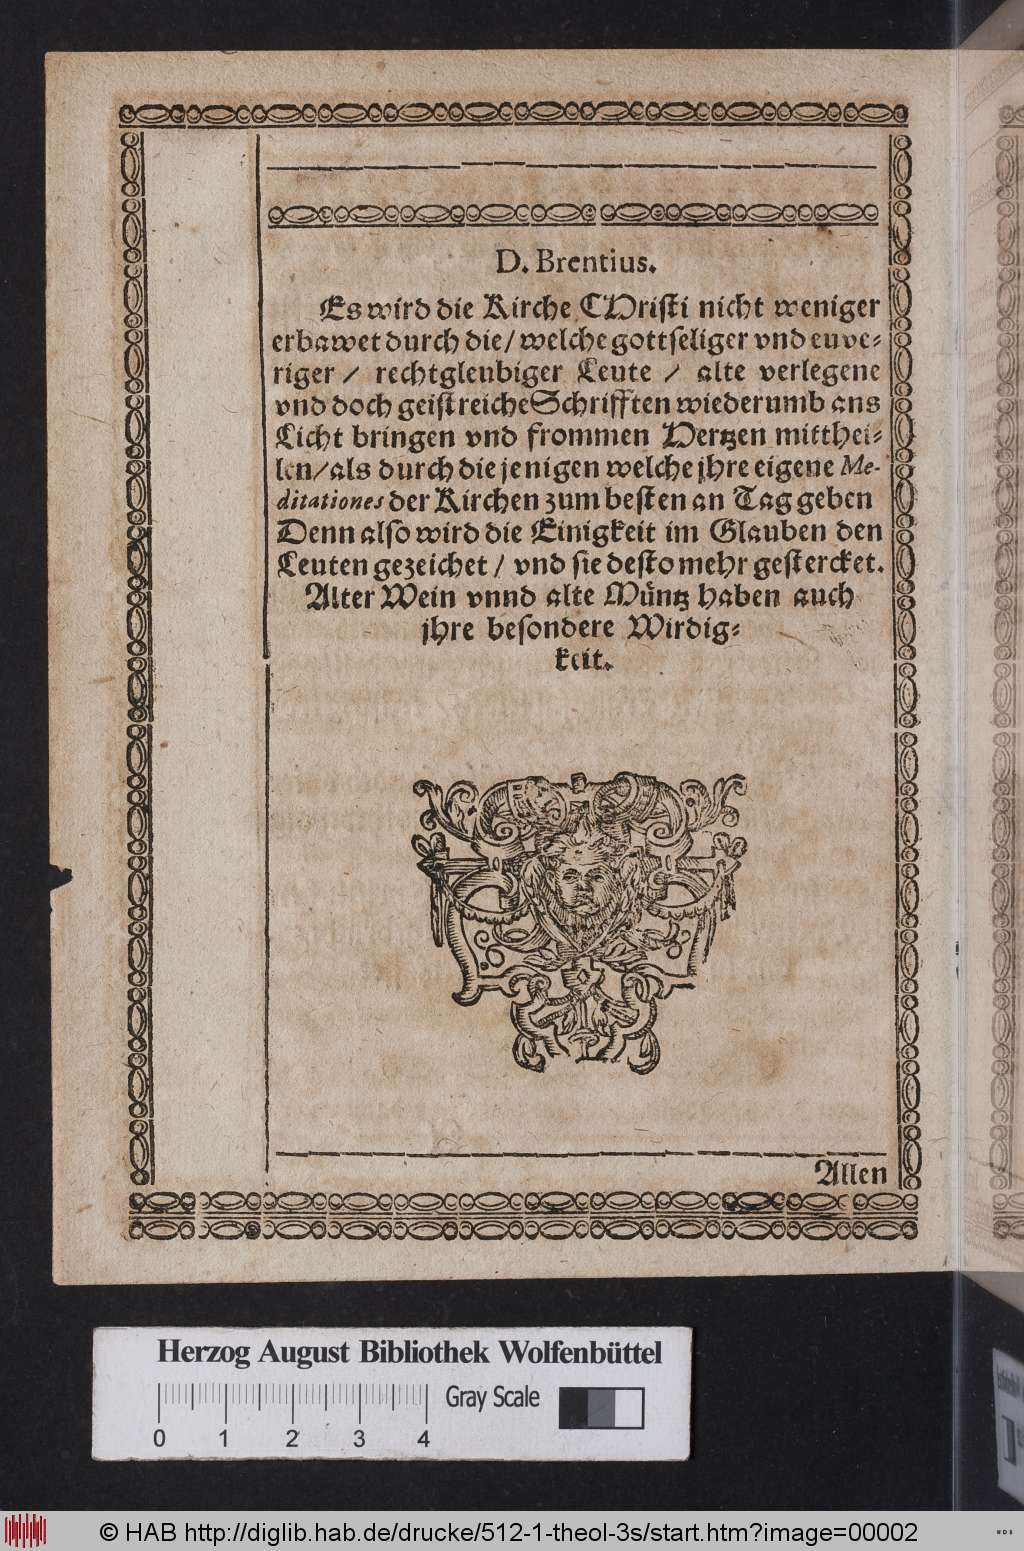 D. Brentius.
Es wird die Kirche CHristi nicht weniger
erbawet durch die / welche gottseliger vnd euve⸗
riger / rechtgleubiger Leute / alte verlegene
vnd doch geistreiche Schrifften wiederumb ans
Licht bringen vnd frommen Hertzen mitthei⸗
len / als durch die jenigen welche jhre eigene Me-
ditationes der Kirchen zum besten an Tag geben
Denn also wird die Einigkeit im Glauben den
Leuten gezeichet / vnd sie desto mehr gestercket.
Alter Wein vnnd alte Müntz haben auch
jhre besondere Wirdig⸗
keit.
Allen
Herzog August Bibliothek Wolfenbüttel
Gray Scale
0 1 2 3 4
© HAB http://diglib.hab.de/drucke/512-1-theol-3s/start.htm?image=00002